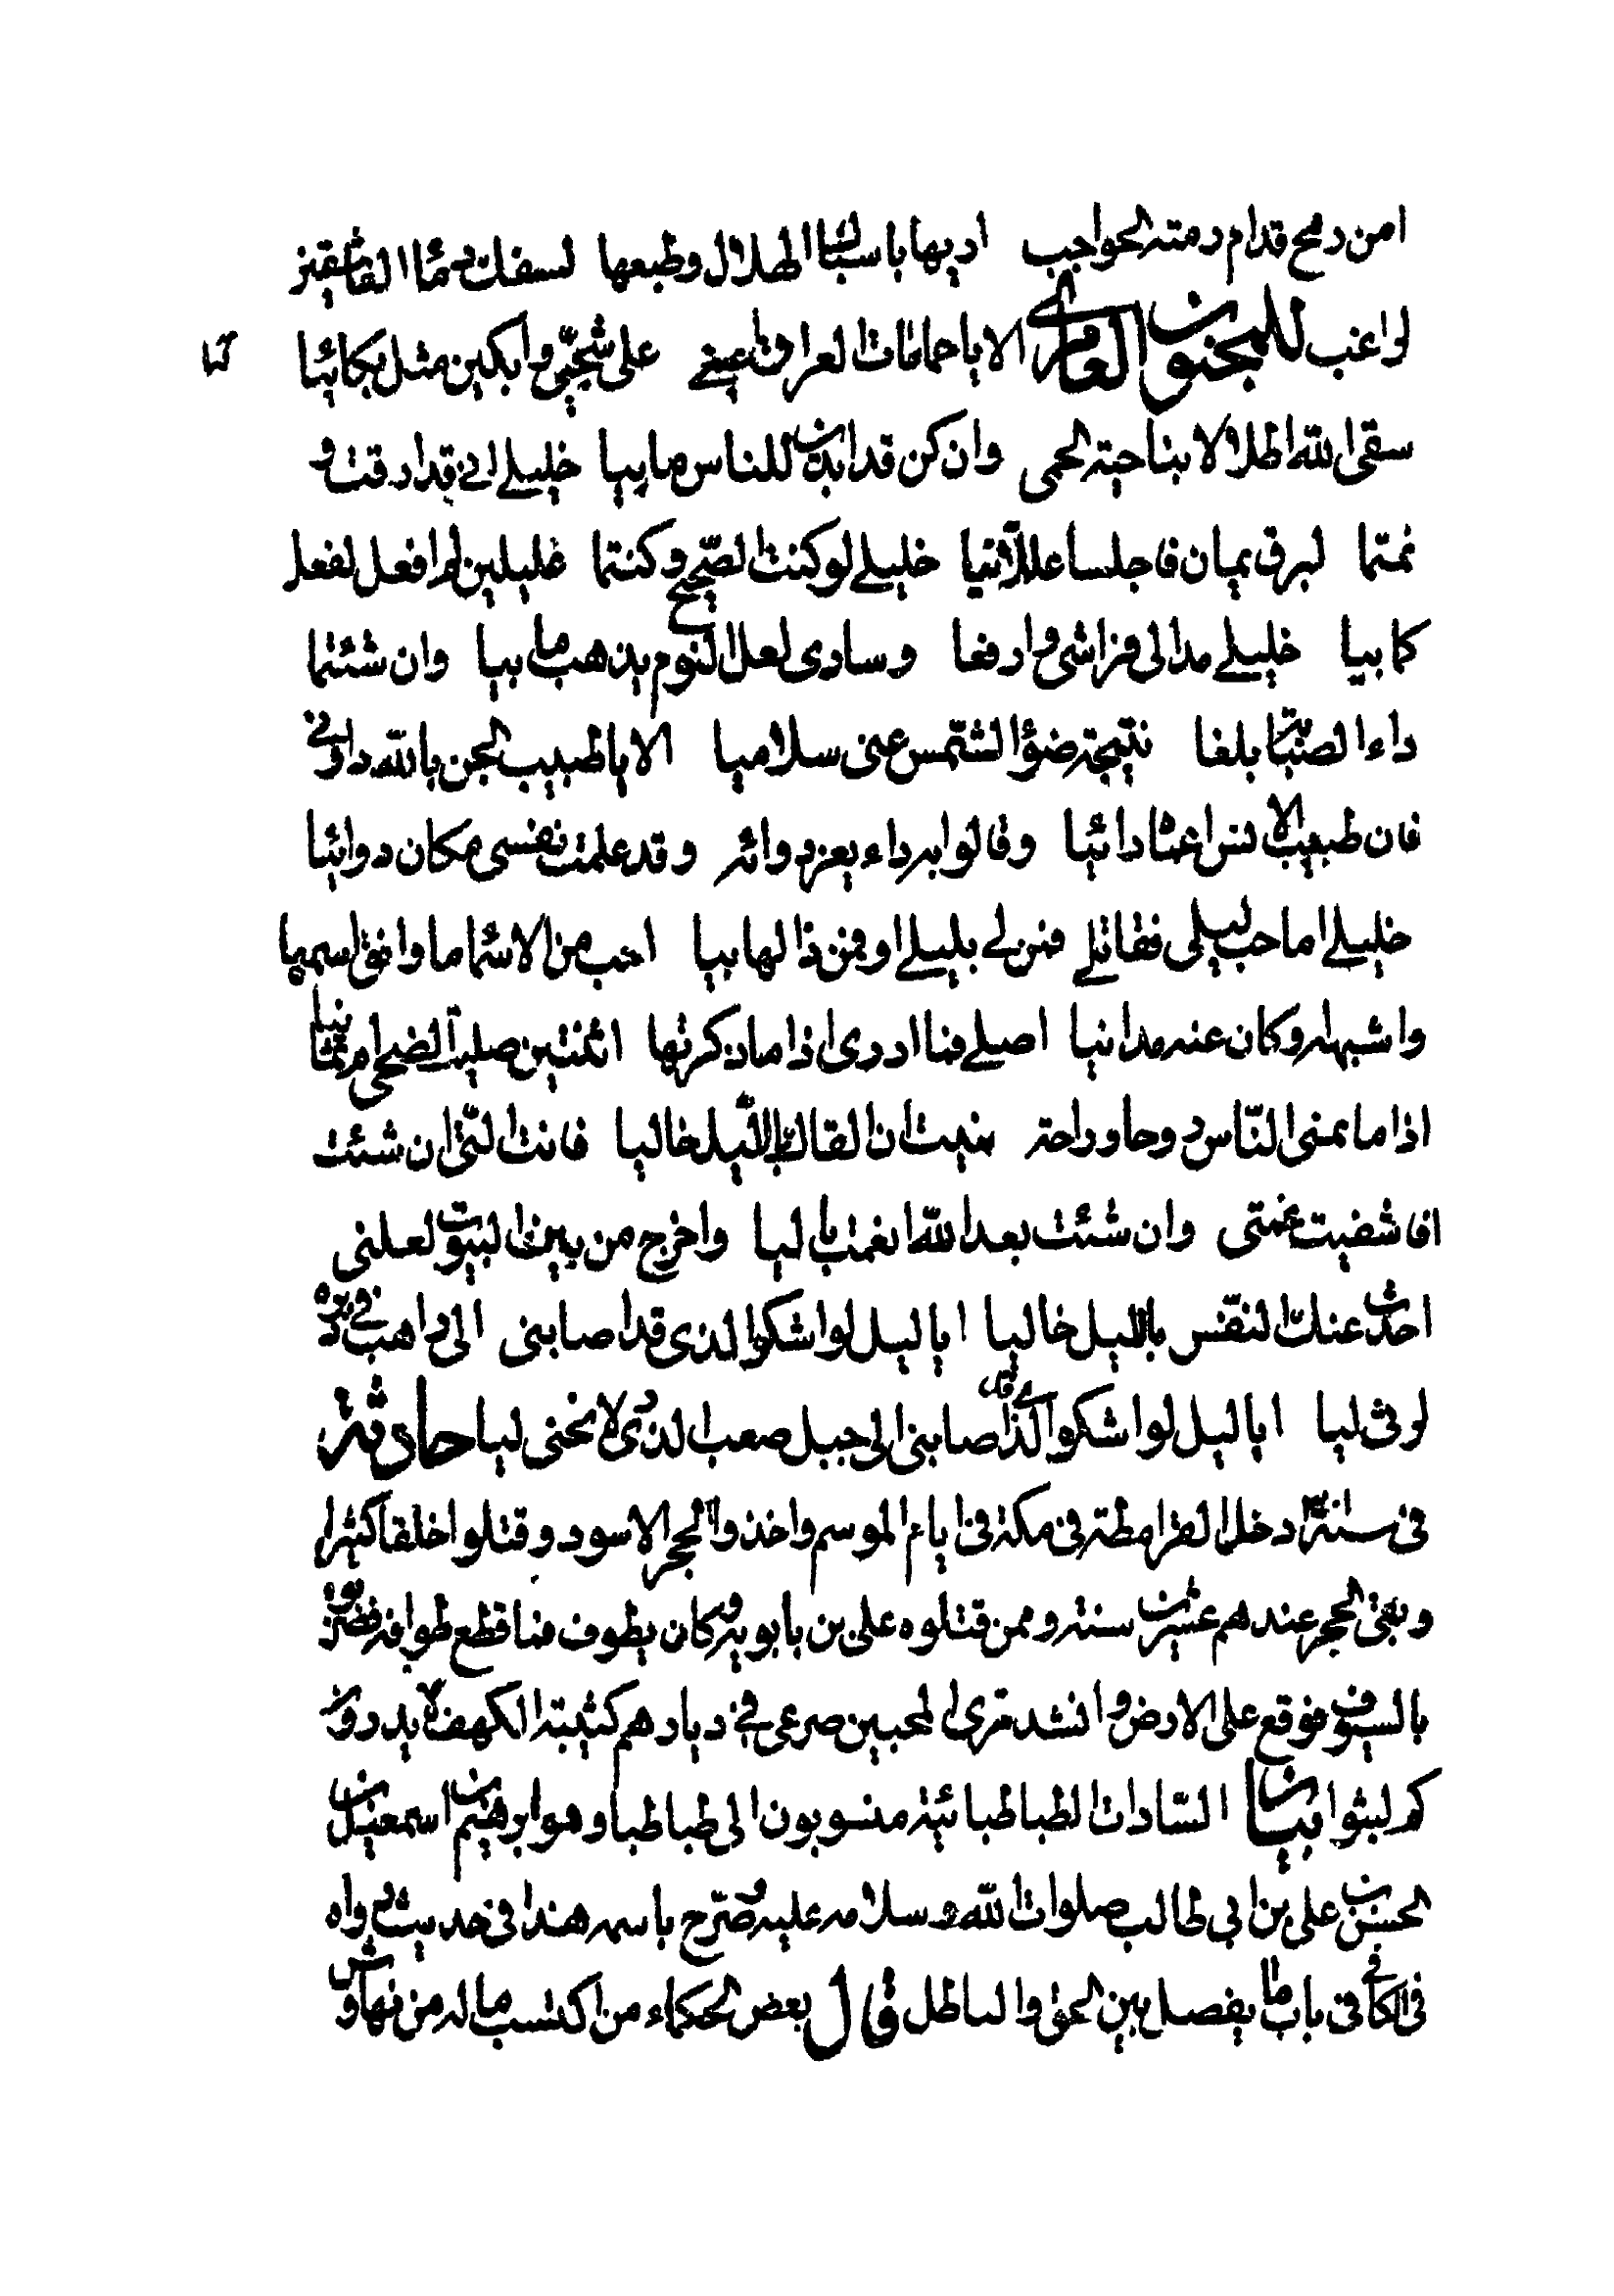 امن رمح قدام رمته الحواجب اديها باسباب الهلال وطبعها لسفك دماء العاشقين
لواعب للمجنون العامري الا يا حمامات العراق اعينني على شجني وابكين مثل بكائيا
سقى الله اطلالا بناحية الحمى وان كن قد ابدين للناس ما بيا خليلي اني قد ارقت و
نمتما لبرق يمان فاجلسا عللانيا خليلي لو كنت الصحيح وكنتما عليلين لم افعل لفعل
كما بيا خليلي مدا لي فراشي وارفعا وسادي لعل النوم يذهب ما بيا وان شئتما
داء الصبابة بلغا نتيجة ضوء الشمس عني سلاميا الا يا طبيب الجن بالله داوني
فان طبيب الانس اعياه دائيا وقالوا به داء يعز دوائه وقد علمت نفسي مكان دوائيا
خليلي اما حب ليلى فقاتلي فمن لي بليلى او فمن ذا لها بيا احب من الاسماء ما وافق اسمها
واشبهه وكان عنه مدانيا اصلي فما ادري اذا ما ذكرتها اثنتين صليت الضحى ام ثمانيا
اذا ما يمنى الناس روحا وراحة منيت ان القاك بالليل خاليا فانت التي ان شئت
اقا شفيت غمتي وان شئت بعد الله انعمت باليا واخرج من بين البيوت لعلني
احدث عنك النفس بالليل خاليا ايا ليل لو اشكو الذي قد اصابني الى راهب في ديره
لرثى ليا ايا ليل لو اشكو الذي قد اصابني الى جبل صعب الذرى لانحنى ليا حادثة
في سنة دخل القرامطة في مكة في ايام الموسم واخذوا الحجر الاسود وقتلوا خلقا كثيرا
وبقي الحجر عندهم عشرين سنة وممن قتلوه علي بن بابويه وكان يطوف فما قطع طوافه فضربوه
بالسيوف فوقع على الارض وانشد ترى المحبين صرعى في ديارهم كفتية الكهف لا يدرون
كم لبثوا بيان السادات الطباطبائية منسوبون الى طباطبا وهو ابرهيم بن اسمعيل بن
الحسن بن علي بن ابي طالب صلوات الله وسلامه عليه وصرح باسمه هذا في حديث رواه
في الكافي في باب ما يفصل بين الحق والباطل قال بعض الحكماء من اكتسب ماله من نهاوش